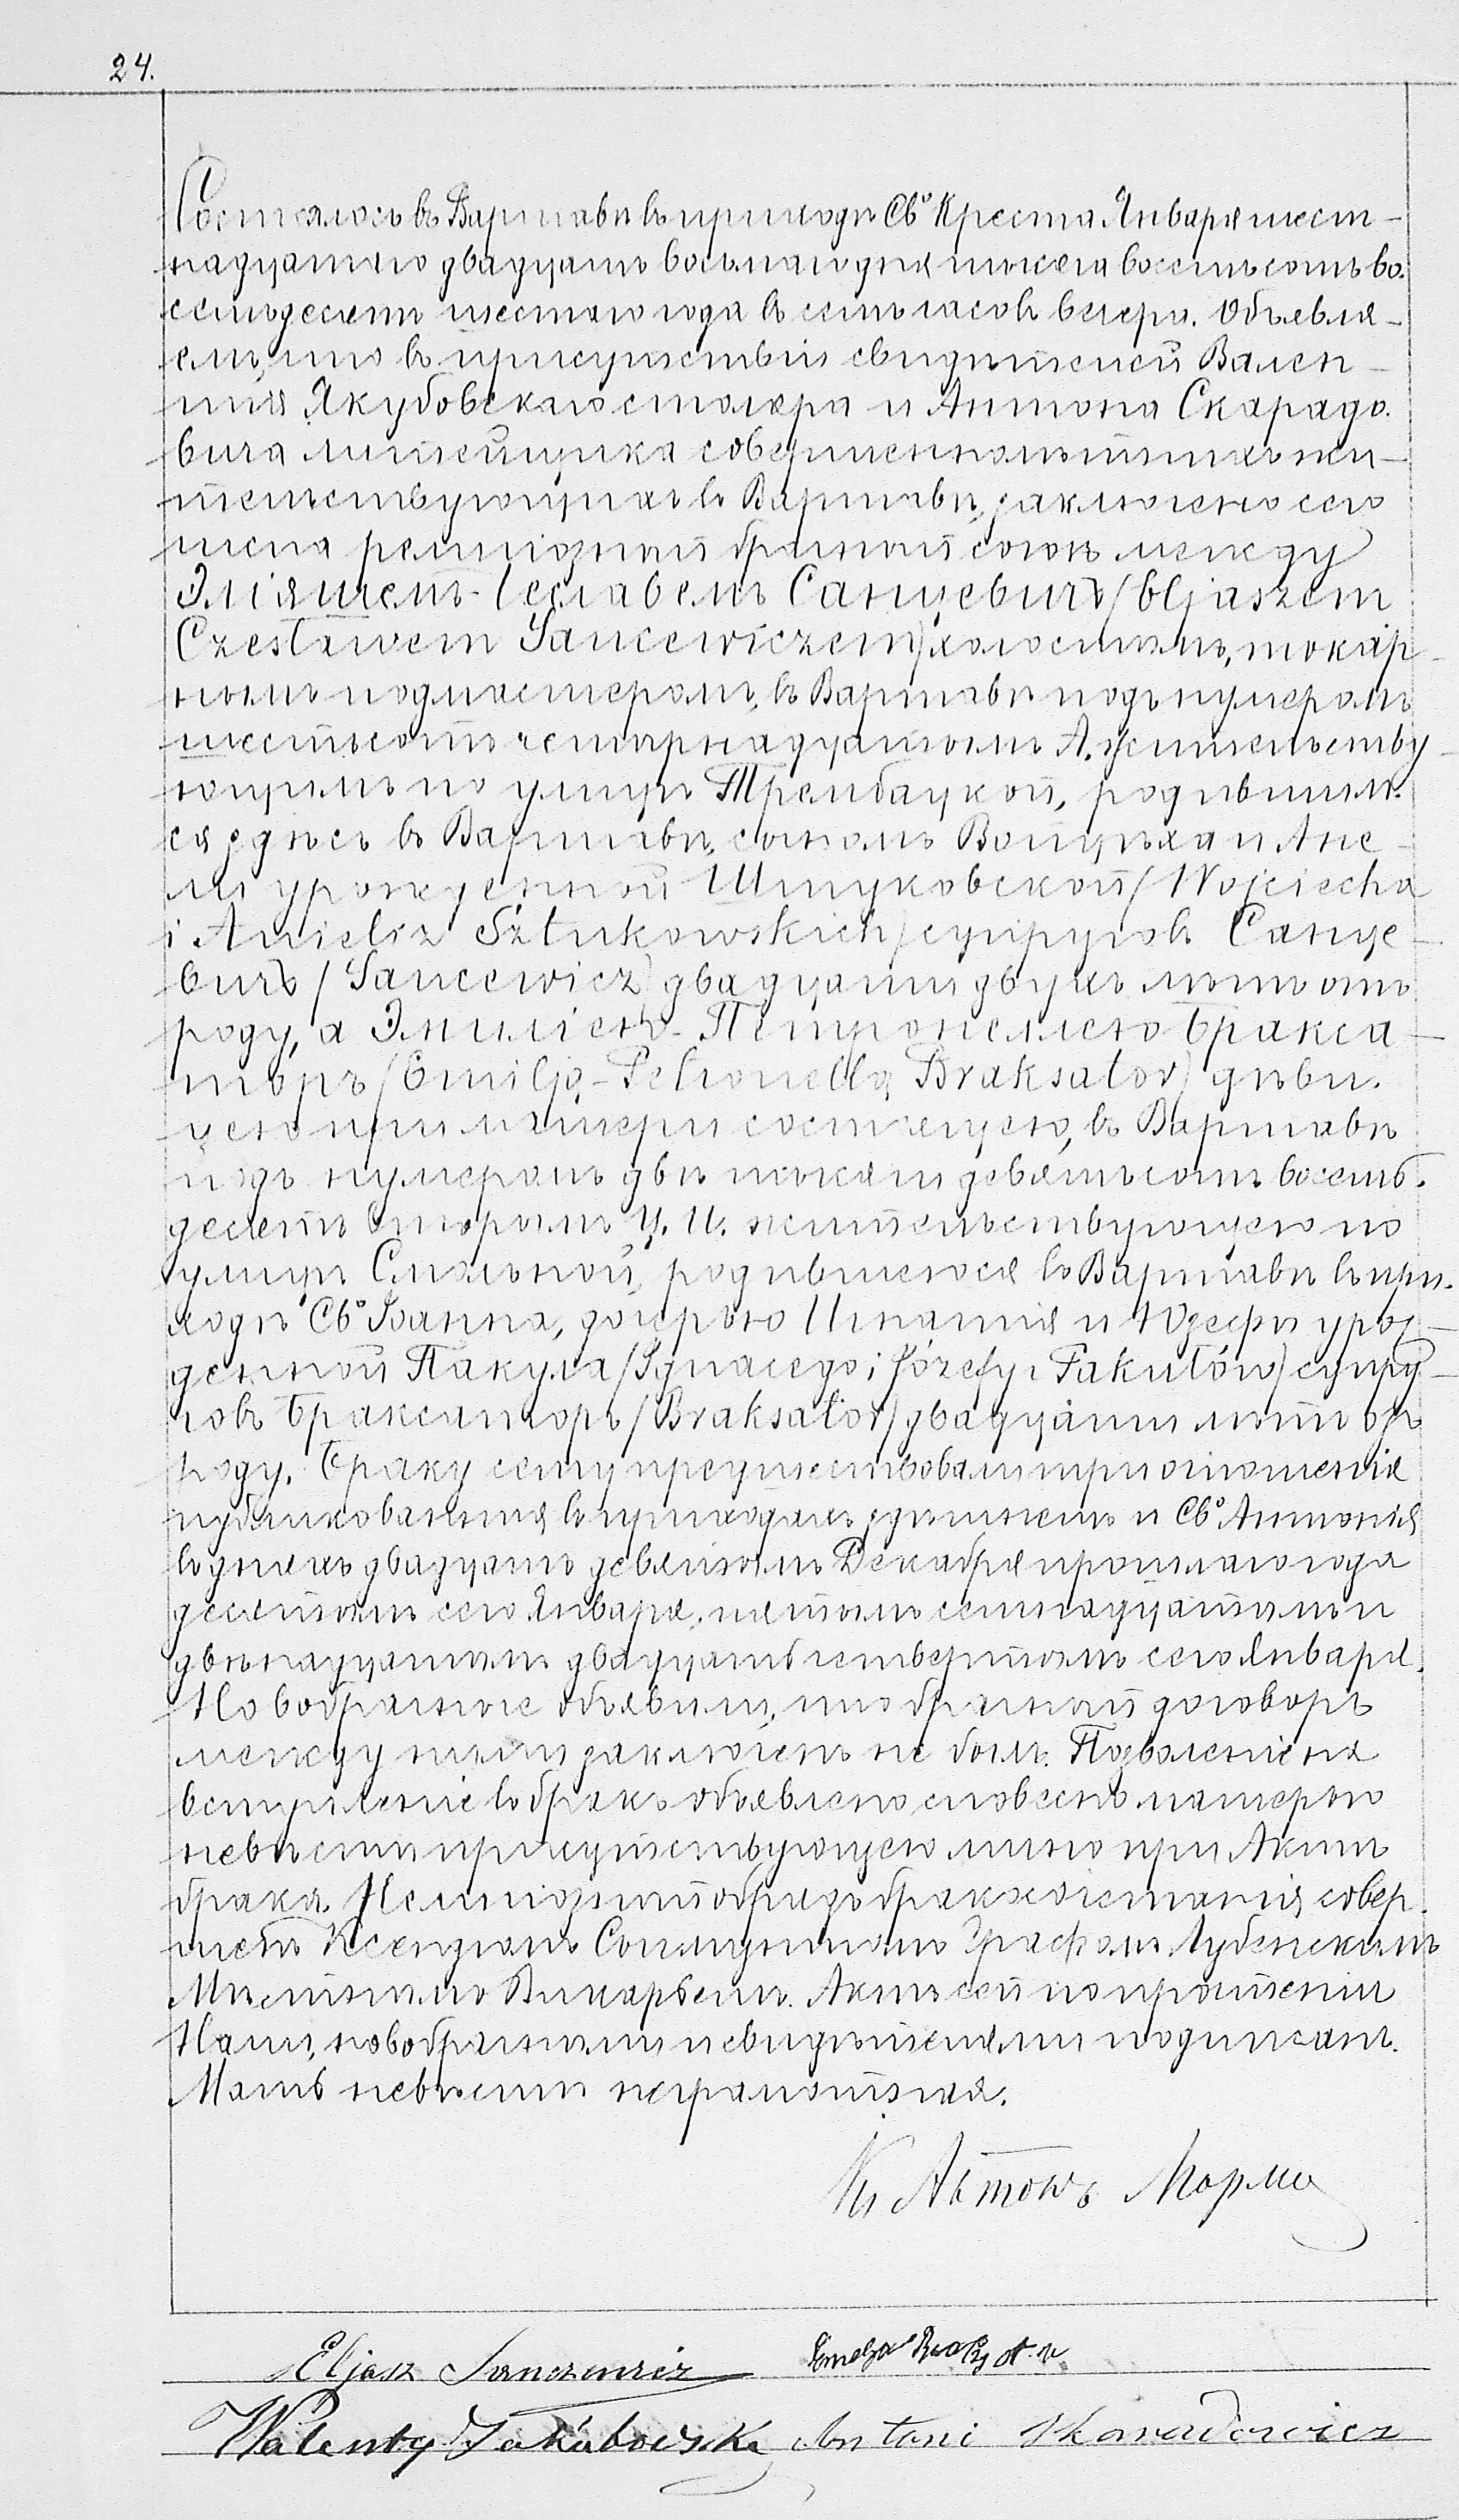 24.
Состоялось въ Варшавѣ въ приходѣ Св. Креста Января шест-
надцатаго двадцать восьмаго дня тысяча восемьсотъ во-
семьдесятъ шестаго года въ семь часовъ вечера. Объявля-
емъ, что въ присутствіи свидѣтелей Вален-
тія Якубовскаго столяра и Антона Скарадо-
вича литейщика совершеннолѣтнихъ жи-
тельствующихъ въ Варшавѣ, заключено сего
числа религіозный брачный союзъ между
Эліяшемъ-Чеславемъ Санцевичъ /Eljaszem
Czesławem Sancewiczem/ холостымъ, токар-
нымъ подмастеромъ, въ Варшавѣ подъ нумеромъ
шестьсотъ четырнадцатымъ А. жительству-
ющимъ по улицѣ Трембацкой, родившим-
ся здѣсь въ Варшавѣ, сыномъ Войцѣха и Ане-
ли урожденной Штуковской /Wojciecha
i Anieliz Sztukowskich/ супруговъ Санце-
вичъ /Sancewicz/ двадцати двухъ лѣтъ отъ
роду, а Эмиліею-Петронеллею Бракса-
торъ /Emilją-Petronellą Braksator/ дѣви-
цею при матери состоящею, въ Варшавѣ
подъ нумеромъ двѣ тысячи девятьсотъ восемь-
десятъ вторымъ Ц. И. жительствующею по
улицѣ Смольной, родившеюся въ Варшавѣ въ при-
ходѣ Св. Іоанна, дочерью Игнатія и Юзефы урож-
денной Пакула /Ignacego i Józefy z Pakułów/ супру-
говъ Браксаторъ /Braksator/ двадцати лѣтъ отъ
роду. Браку сему предшествовали три оглашенія
публикованныя въ приходахъ здѣшнемъ и Св. Антонія
въ дняхъ двадцать девятомъ Декабря прошлаго года
десятомъ сего Января, пятомъ семнадцатомъ и
двѣнадцатомъ двадцать четвертомъ сего Января.
Новобрачные объявили, что брачный договоръ
между ними заключенъ не былъ. Позволеніе на
вступленіе въ бракъ объявлено словесно матерью
невѣсты присутствующею лично при Актѣ
брака. Религіозный обрядъ бракосочетанія совер-
шенъ Ксендзомъ Графомъ Лубенскимъ
Мѣстнымъ Викаріемъ. Актъ сей по прочтеніи
Нами, новобрачными и свидѣтелями подписанъ.
Мать невѣсты неграмотная.
Кс Антонъ
Eljasz Sanczewicz
Walenty Jakubowski Antoni Skaradowicz